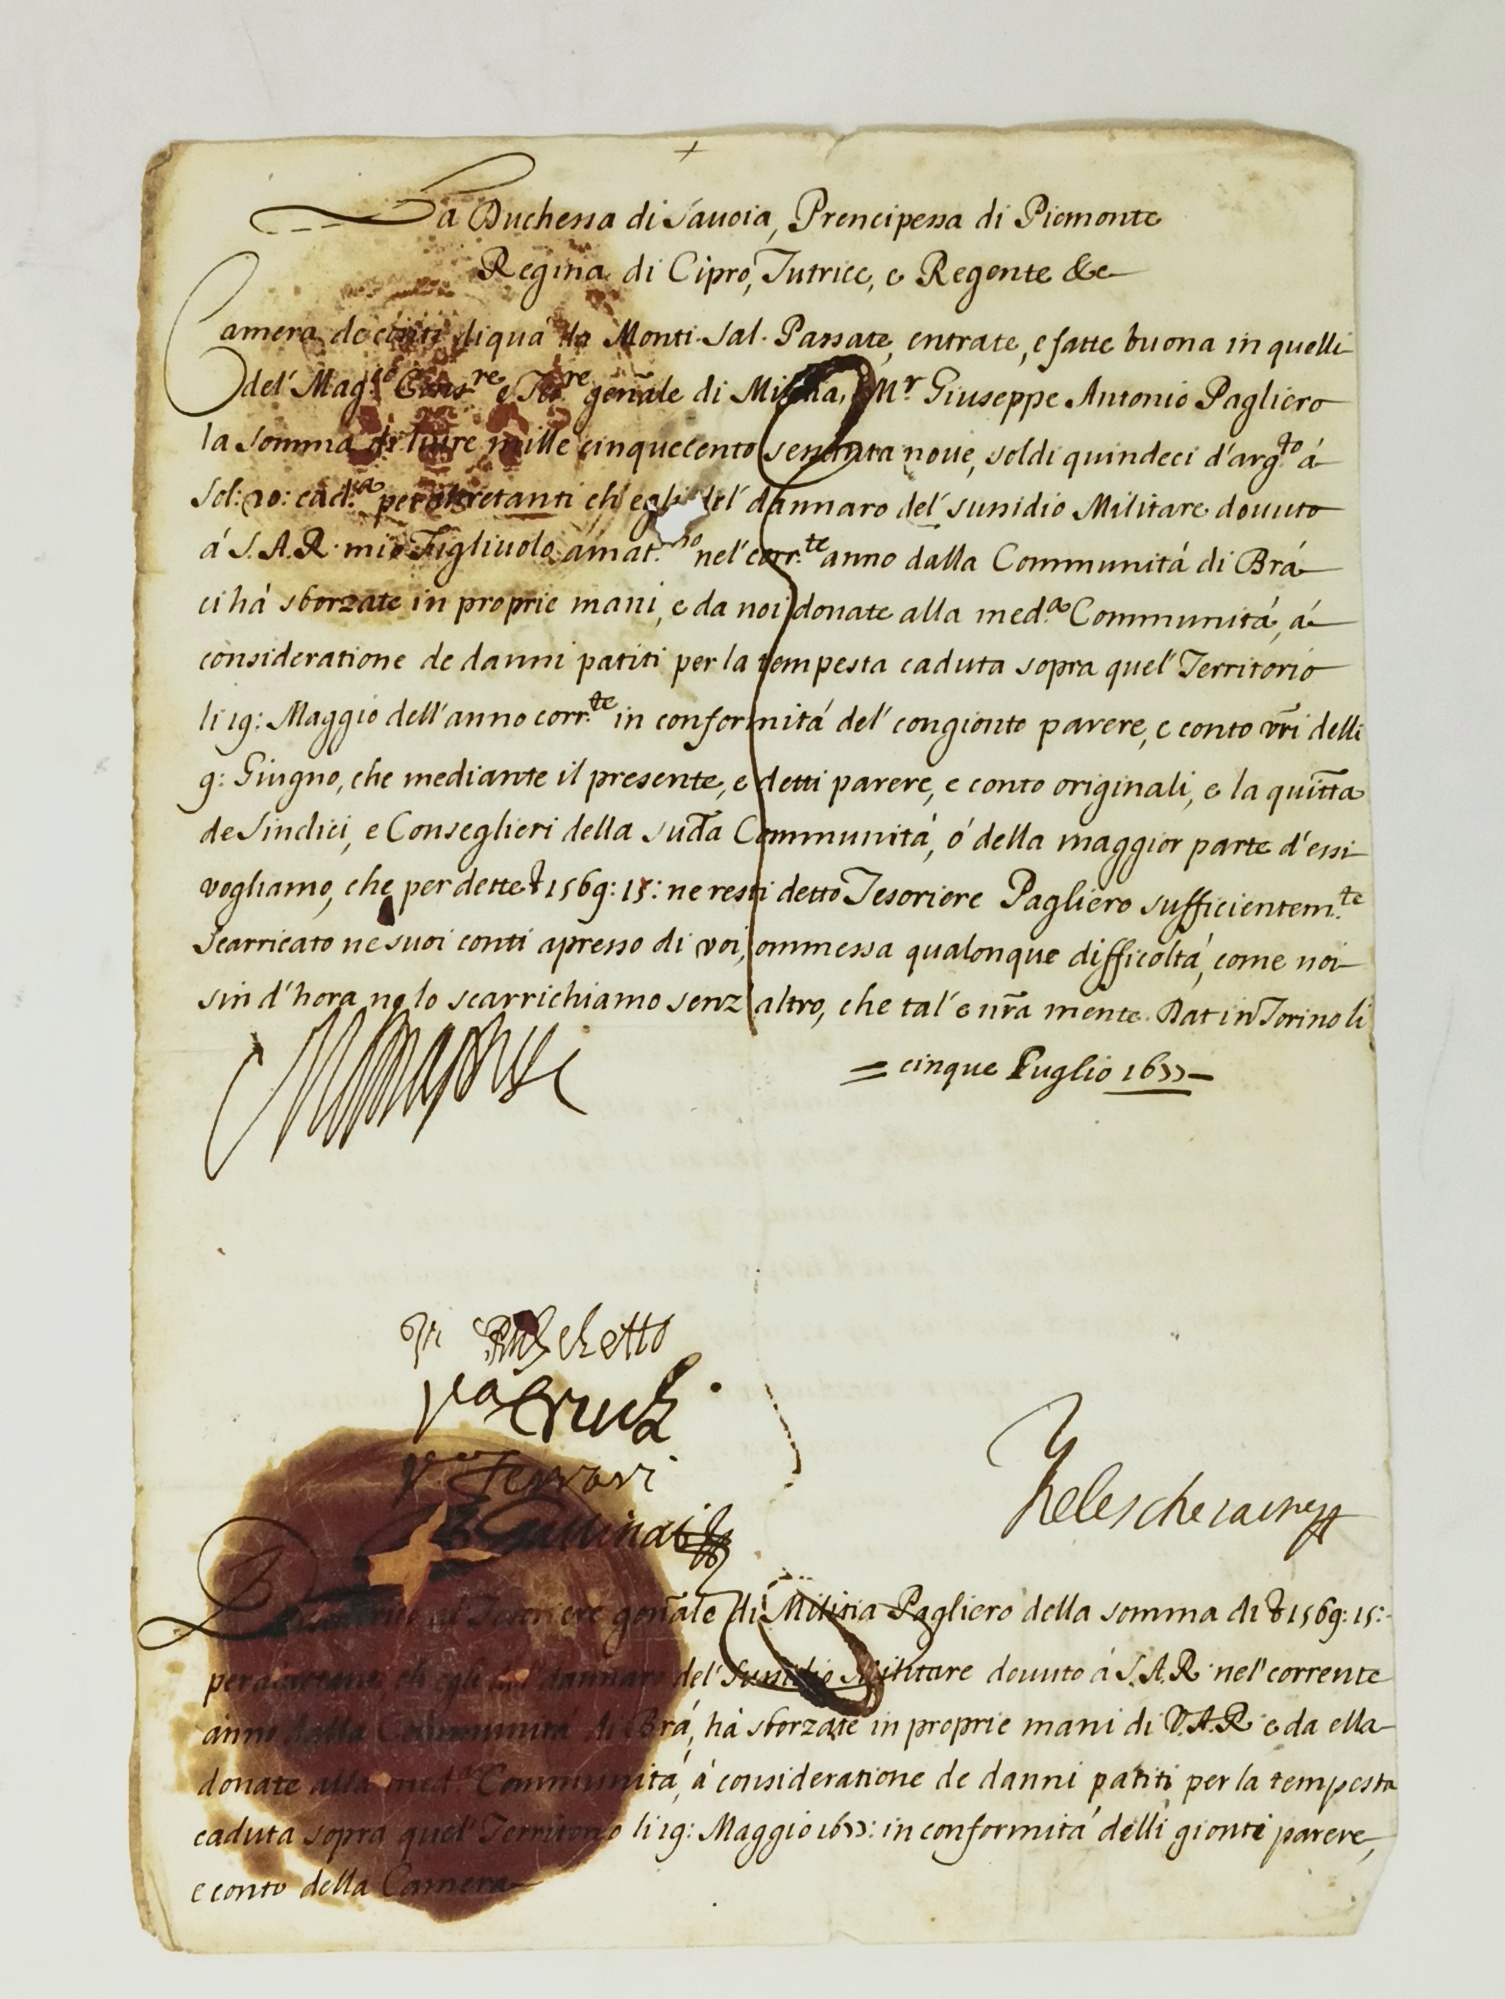 La Duchessa di Sauoia, Prencipessa di Piemonte
Regina di Cipro, Tutrice, e Regente &c
Camera de conti di quà da Monti. Sal. Passate, entrate, e fatte buona in quelli
del' Mag.co Cons.re e Tes.re gen̄ale di Militia, Mr Giuseppe Antonio Pagliero
la somma di liure mille cinquecento sessanta noue, soldi quindeci d'arg.to á
Sol: 20: cad.a per altretanti ch'egli del' dannaro del' sussidio Militare douuto
á S.A.R. mio Figliuolo amat.mo nel' corr.te anno dalla Communitá di Brá
ci há sborzate in proprie mani, e da noi donate alla med.a Communitá, á
consideratione de danni patiti per la tempesta caduta sopra quel' Territorio
li 19: Maggio dell'anno corr.te in conformitá del' congionto parere, e conto vr̄i delli
9: Giugno, che mediante il presente, e detti parere, e conto originali, e la quitt̄a
de Sindici, e Conseglieri della sud̄a Communitá, ó della maggior parte d'essi
vogliamo, che per dette ₶ 1569: 15: ne resti detto Tesoriere Pagliero sufficientem.te
Scarricato ne suoi conti apresso di voi, ommessa qualonque difficoltá, come noi
sin d'hora ne lo scarrichiamo senz'altro, che tal' e nr̄a mente. Dat in Torino li
= cinque Luglio 1677 -
Va Ferrari
Gallinati
gen̄ale di Militia Pagliero della somma di ₶ 1569: 15:
per altretanti ch'egli del' dannaro del' Sussidio Militare douuto á S.A.R. nel' corrente
anno dalla Communitá di Brá, há sborzate in proprie mani di V.A.R. e da ella
donate alla med.a Communitá, á consideratione de danni patiti per la tempesta
caduta sopra quel' Territorio li 19: Maggio 1677: in conformitá delli gionti parere,
e conto della Camera